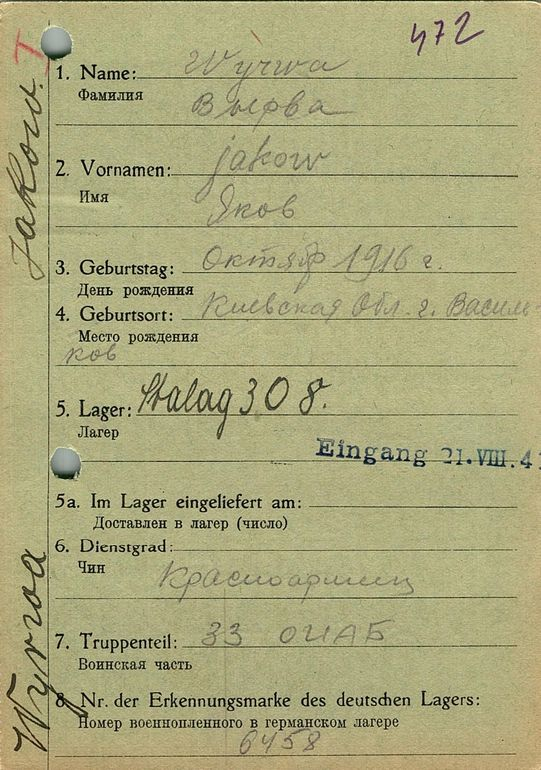 472
I
1. Name: Wyrwa
Фамилия Вырва
2. Vornamen: jakow
Имя Яков
3. Geburtstag: Октябр 1916 г.
День рождения
4. Geburtsort: Киевская Обл. г. Василь-
Место рождения
ков
5. Lager: Stalag 308.
Лагер
Eingang 21. VIII. 41
5a. Im Lager eingeliefert am:
Доставлен в лагер (число)
6. Dienstgrad:
Чин Красноармеец
7. Truppenteil: 33 ОИАБ
Воинская часть
8. Nr. der Erkennungsmarke des deutschen Lagers:
Номер военнопленного в германском лагере
6458
Wyrwa Jakow.